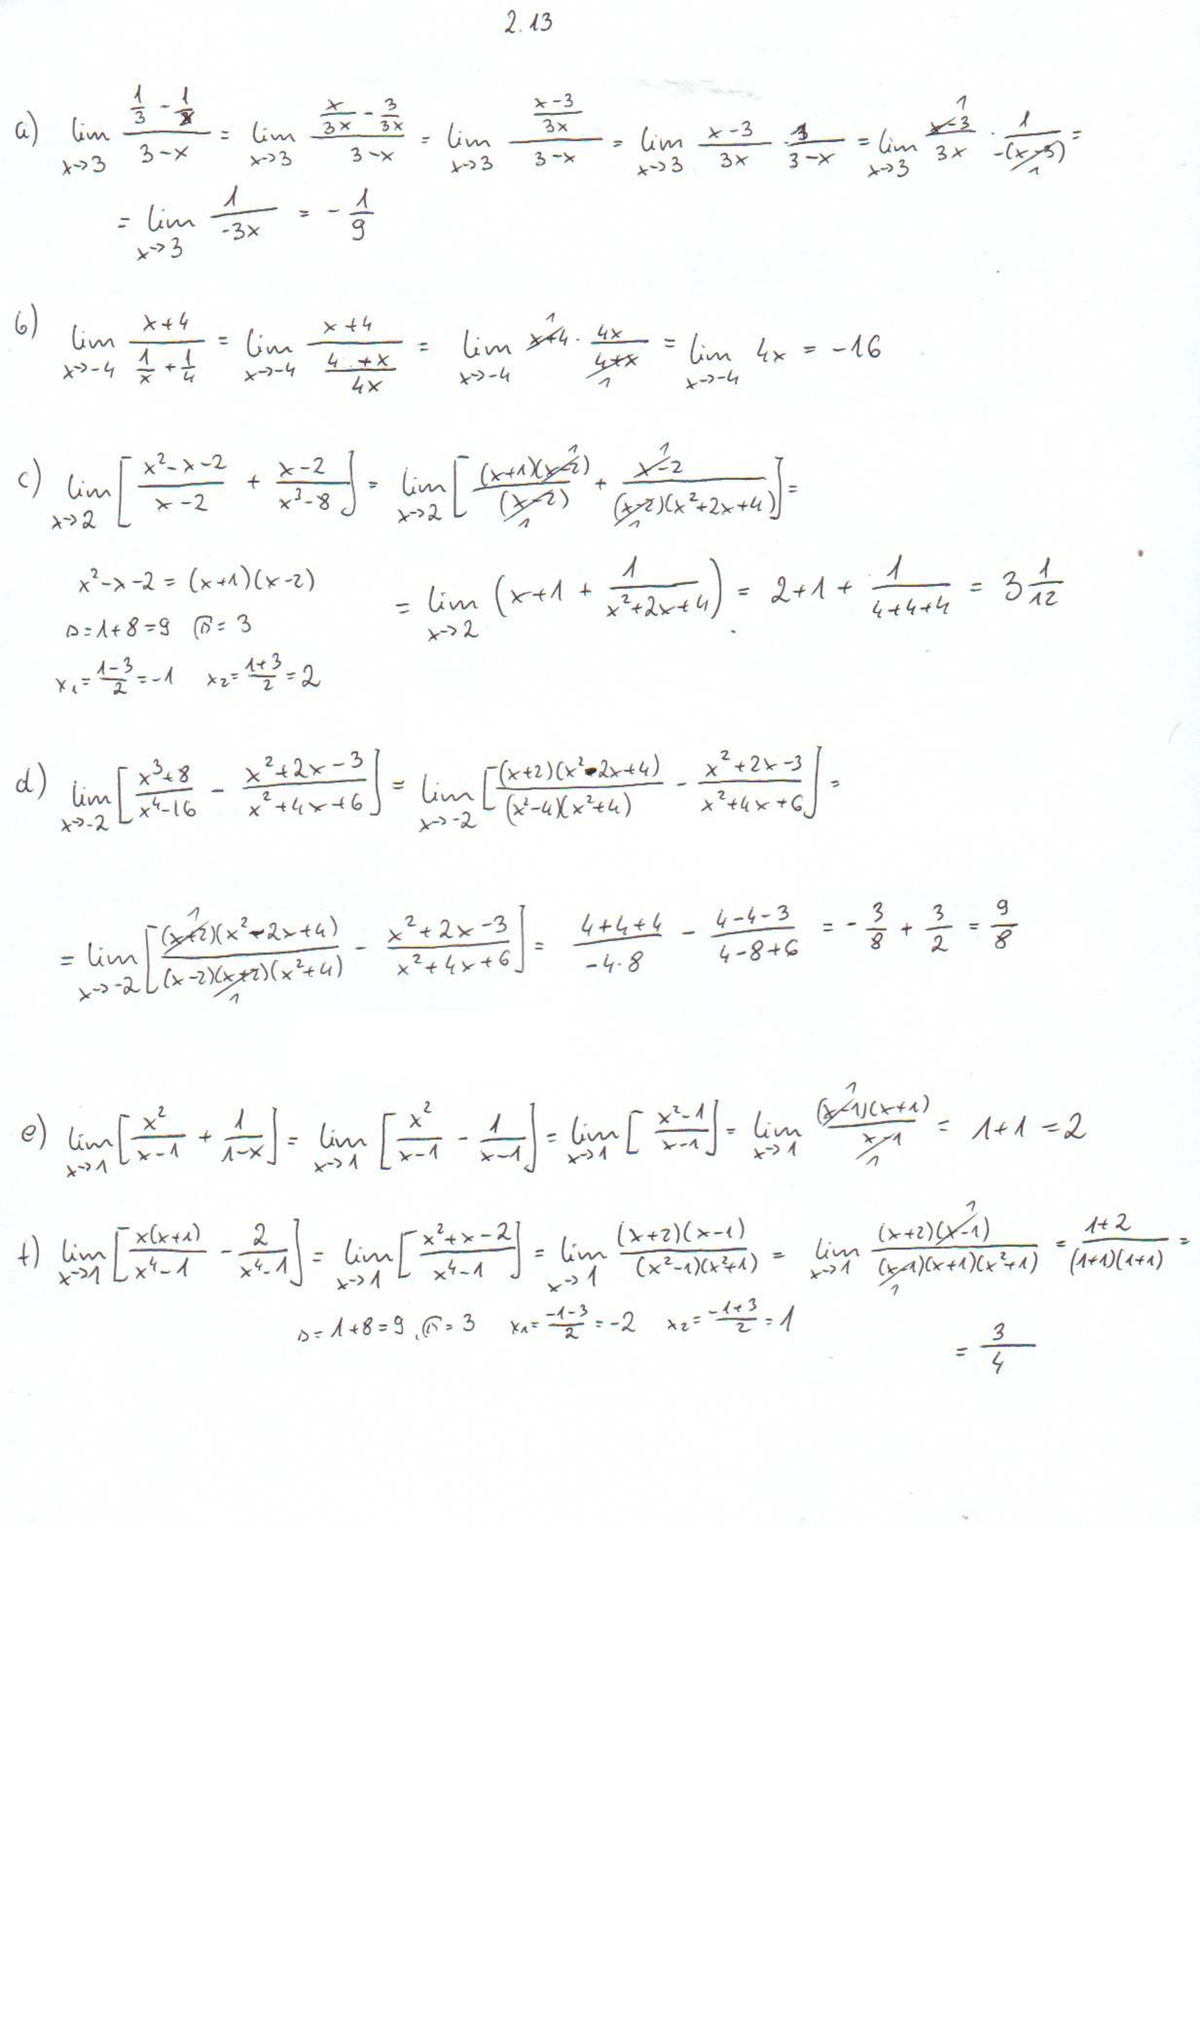 2.13
a) lim x→3 (1/3 - 1/x)/(3-x) = lim x→3 (x/3x - 3/3x)/(3-x) = lim x→3 ((x-3)/3x)/(3-x) = lim x→3 (x-3)/3x · 1/(3-x) = lim x→3 (x-3)/3x · 1/(-(x-3)) =
= lim x→3 1/(-3x) = -1/9
b) lim x→-4 (x+4)/(1/x + 1/4) = lim x→-4 (x+4)/((4+x)/4x) = lim x→-4 x+4 · 4x/(4+x) = lim x→-4 4x = -16
c) lim x→2 [(x²-x-2)/(x-2) + (x-2)/(x³-8)] = lim x→2 [(x+1)(x-2)/(x-2) + (x-2)/((x-2)(x²+2x+4))] =
x²-x-2 = (x+1)(x-2)
= lim x→2 (x+1 + 1/(x²+2x+4)) = 2+1+ 1/(4+4+4) = 3 1/12
Δ=1+8=9 √Δ=3
x₁=(1-3)/2=-1 x₂=(1+3)/2=2
d) lim x→-2 [(x³+8)/(x⁴-16) - (x²+2x-3)/(x²+4x+6)] = lim x→-2 [(x+2)(x²-2x+4)/((x²-4)(x²+4)) - (x²+2x-3)/(x²+4x+6)] =
= lim x→-2 [(x+2)(x²-2x+4)/((x-2)(x+2)(x²+4)) - (x²+2x-3)/(x²+4x+6)] = (4+4+4)/(-4·8) - (4-4-3)/(4-8+6) = -3/8 + 3/2 = 9/8
e) lim x→1 [x²/(x-1) + 1/(1-x)] = lim x→1 [x²/(x-1) - 1/(x-1)] = lim x→1 [(x²-1)/(x-1)] = lim x→1 (x-1)(x+1)/(x-1) = 1+1 = 2
f) lim x→1 [x(x+1)/(x⁴-1) - 2/(x⁴-1)] = lim x→1 [(x²+x-2)/(x⁴-1)] = lim x→1 (x+2)(x-1)/((x²-1)(x²+1)) = lim x→1 (x+2)(x-1)/((x-1)(x+1)(x²+1)) = (1+2)/((1+1)(1+1)) =
Δ=1+8=9, √Δ=3 x₁=(-1-3)/2=-2 x₂=(-1+3)/2=1
= 3/4